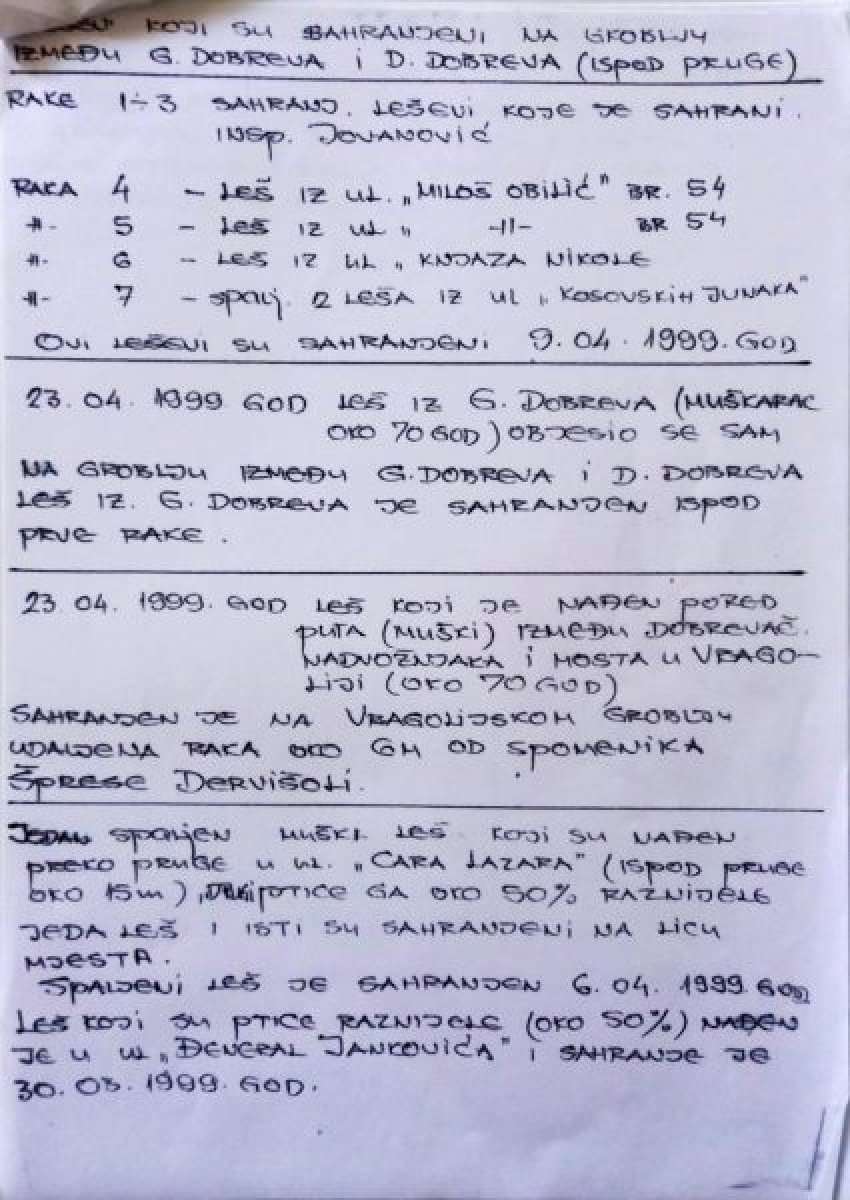 KOJI SU SAHRANJENI NA GROBLJU
IZMEĐU G. DOBREVA I D. DOBREVA (ISPOD PRUGE)
RAKE 1÷3 SAHRANJ. LEŠEVI KOJE JE SAHRANI.
INSP. JOVANOVIĆ
RAKA 4 – LEŠ IZ UL. „MILOŠ OBILIĆ" BR. 54
-II- 5 – LEŠ IZ UL „ -II- BR 54
-II- 6 – LEŠ IZ UL „ KNJAZA NIKOLE
-II- 7 – SPALJ. 2 LEŠA IZ UL „ KOSOVSKIH JUNAKA"
OVI LEŠEVI SU SAHRANJENI 9.04.1999.GOD
23.04.1999 GOD LEŠ IZ G. DOBREVA (MUŠKARAC
OKO 70 GOD) OBJESIO SE SAM
NA GROBLJU IZMEĐU G.DOBREVA I D. DOBREVA
LEŠ IZ. G. DOBREVA JE SAHRANJEN ISPOD
PRVE RAKE.
23 04. 1999. GOD LEŠ KOJI JE NAĐEN PORED
PUTA (MUŠKI) IZMEĐU DOBREVAČ.
NADVOŽNJAKA I MOSTA U VRAGO-
LIJI (OKO 70 GOD)
SAHRANJEN JE NA VRAGOLIJSKOM GROBLJU
UDALJENA RAKA OKO 6M OD SPOMENIKA
ŠPRESE DERVIŠOLI.
JEDAN SPALJEN MUŠKI LEŠ KOJI SU NAĐEN
PREKO PRUGE U UL. „CARA LAZARA" (ISPOD PRUGE
OKO 15m), PTICE GA OKO 50% RAZNIJELE
JEDA LEŠ I ISTI SU SAHRANJENI NA LICU
MJESTA.
SPALJENI LEŠ JE SAHRANJEN 6.04.1999 GOD
LEŠ KOJI SU PTICE RAZNIJELE (OKO 50%) NAĐEN
JE U UL „ĐENERAL JANKOVIĆA" I SAHRANJE JE
30.03.1999.GOD.